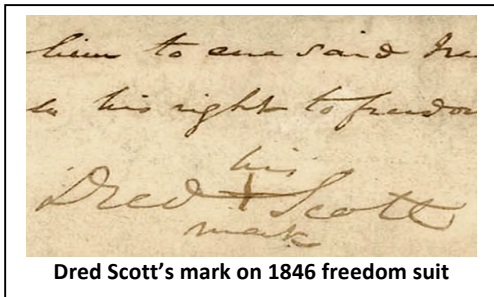 him to sue said Ire
his right to freedom
his
Dred X Scott
mark
Dred Scott's mark on 1846 freedom suit